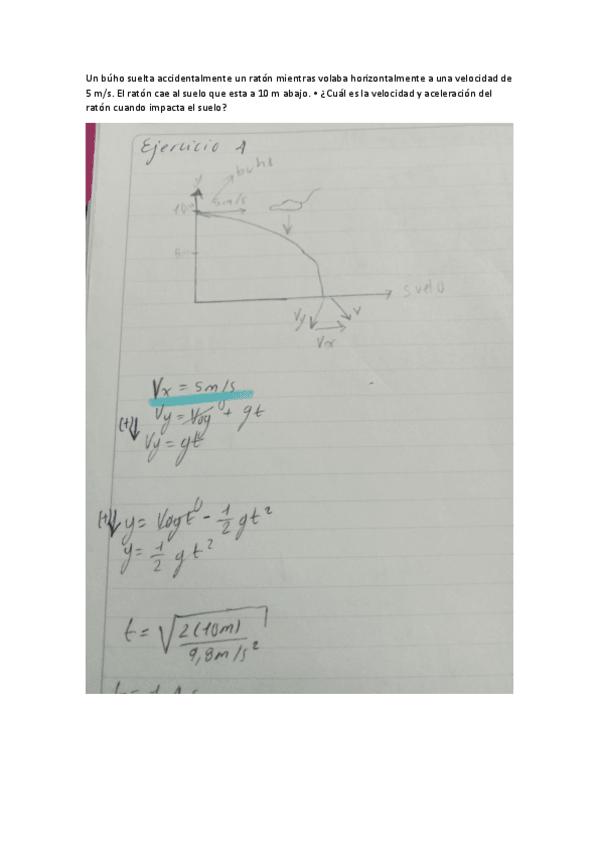 Un búho suelta accidentalmente un ratón mientras volaba horizontalmente a una velocidad de
5 m/s. El ratón cae al suelo que esta a 10 m abajo. • ¿Cuál es la velocidad y aceleración del
ratón cuando impacta el suelo?
Ejercicio 1
y
búho
10
5m/s
suelo
Vy
V
Vx
Vx = 5m/s
(+)↓ Vy = Voy + gt
Vy = gt
(+)↓ y = Voyt - 1/2 gt²
y = 1/2 gt²
t = √2(10m)/9,8m/s²